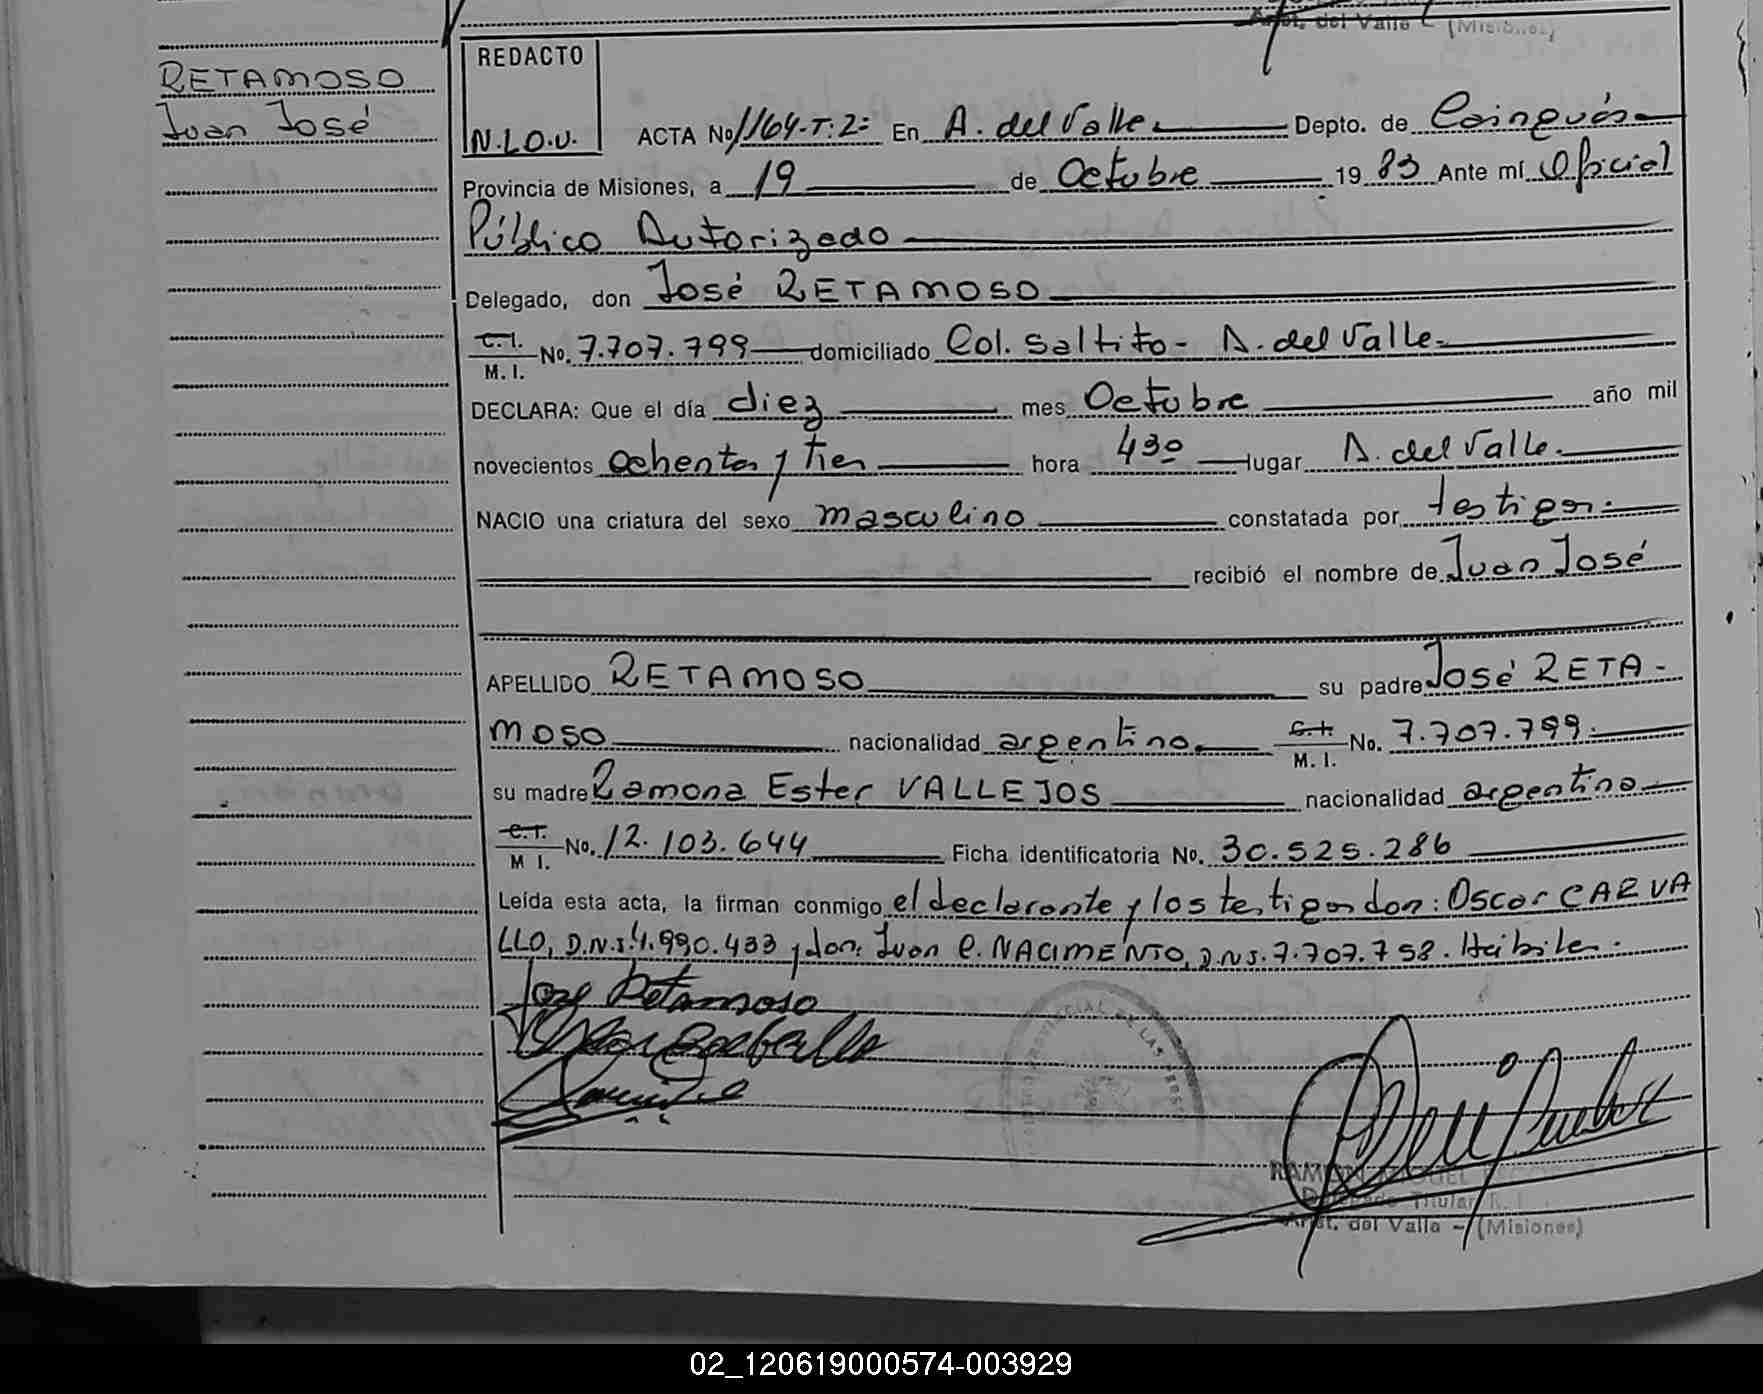 Arist. del Valle - (Misiones)
RETAMOSO
Juan José
REDACTO
N.L.O.V.
ACTA No 1164-T:2= En A. del Valle Depto. de Cainguás
Provincia de Misiones, a 19 de Octubre 19 83 Ante mí Oficial
Público Autorizado
Delegado, don José RETAMOSO
C.I. M.I. No. 7.707.799 domiciliado Col. Saltito - A. del Valle.
DECLARA: Que el día diez mes Octubre año mil
novecientos ochenta y tres hora 4³⁰ lugar A. del Valle.
NACIO una criatura del sexo masculino constatada por testigos.
recibió el nombre de Juan José
APELLIDO RETAMOSO su padre José RETA-
MOSO nacionalidad argentino. C.I. M.I. No. 7.707.799.
su madre Ramona Ester VALLEJOS nacionalidad argentina
C.I. M I. No. 12.103.644 Ficha identificatoria No. 30.525.286
Leída esta acta, la firman conmigo el declarante y los testigos don: Oscar CARVA
LLO, D.N.I. 4.990.433 y don: Juan C. NACIMENTO, D.N.I. 7.707.758. Hábiles.
Jose Retamoso
RAMON MIGUEL
Delegado Titular R.
Arist. del Valle - (Misiones)
02_120619000574-003929